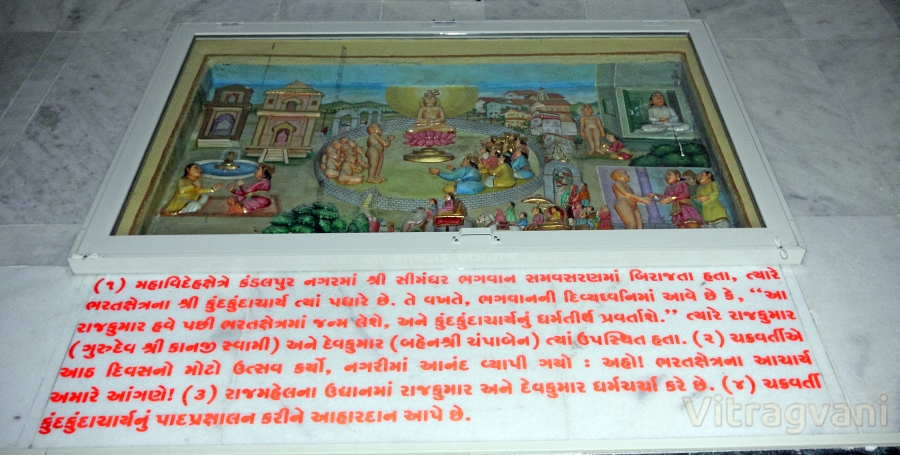 (૧) મહાવિદેહક્ષેત્રે કંડલપુર નગરમાં શ્રી સીમંધર ભગવાન સમવસરણમાં બિરાજતા હતા, ત્યારે
ભરતક્ષેત્રના શ્રી કુંદકુંદાચાર્ય ત્યાં પધારે છે. તે વખતે, ભગવાનની દિવ્યધ્વનિમાં આવે છે કે, “આ
રાજકુમાર હવે પછી ભરતક્ષેત્રમાં જન્મ લેશે, અને કુંદકુંદાચાર્યનું ધર્મતીર્થ પ્રવર્તાશે.” ત્યારે રાજકુમાર
(ગુરુદેવ શ્રી કાનજી સ્વામી) અને દેવકુમાર (બહેનશ્રી ચંપાબેન) ત્યાં ઉપસ્થિત હતા. (૨) ચક્રવર્તીએ
આઠ દિવસનો મોટો ઉત્સવ કર્યો, નગરીમાં આનંદ વ્યાપી ગયો : અહો! ભરતક્ષેત્રના આચાર્ય
અમારે આંગણે! (૩) રાજમહેલના ઉદ્યાનમાં રાજકુમાર અને દેવકુમાર ધર્મચર્ચા કરે છે. (૪) ચક્રવર્તી
કુંદકુંદાચાર્યનું પાદપ્રક્ષાલન કરીને આહારદાન આપે છે.
Vitragvani